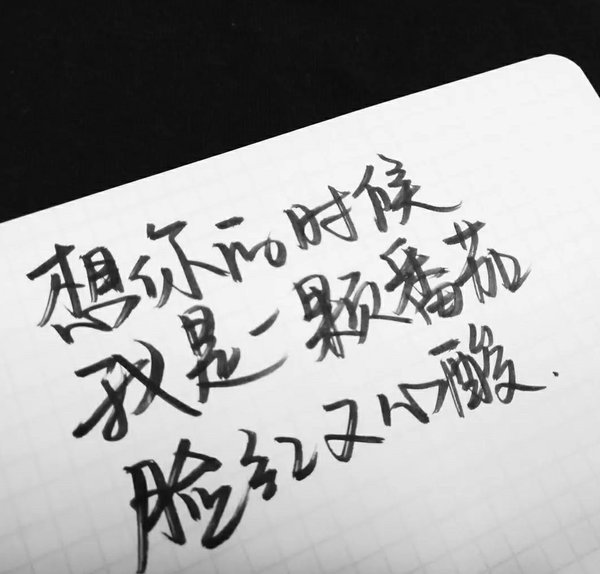 想你的时候
我是一颗番茄
脸红又心酸.